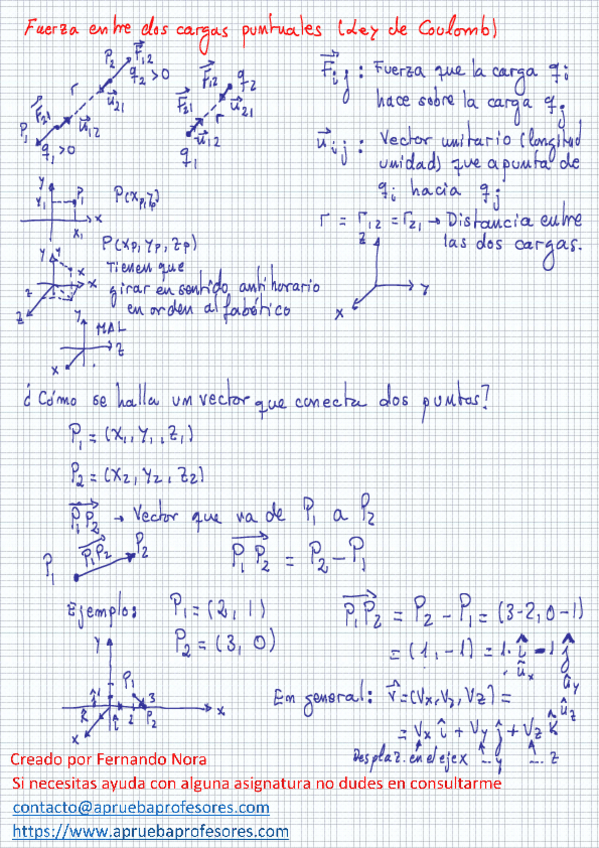 Fuerza entre dos cargas puntuales (Ley de Coulomb)
P₂ F⃗₁₂
q₂>0
r u⃗₂₁
F⃗₂₁
P₁ u⃗₁₂
q₁>0
F⃗₁₂ q₂
r
F⃗₂₁ u⃗₂₁
u⃗₁₂
q₁
F⃗ᵢⱼ : Fuerza que la carga qᵢ
hace sobre la carga qⱼ
u⃗ᵢⱼ : Vector unitario (longitud
unidad) que apunta de
qᵢ hacia qⱼ
r = r₁₂ = r₂₁ → Distancia entre
las dos cargas.
y
y₁ P₁
x₁ x
P(xp, yp)
P(xp, yp, zp)
Tienen que
girar en sentido antihorario
en orden alfabético
y
x
z
z
y
x
y MAL
z
x
¿Cómo se halla un vector que conecta dos puntos?
P₁ = (x₁, y₁, z₁)
P₂ = (x₂, y₂, z₂)
P₁P₂ → Vector que va de P₁ a P₂
P₁ P₁P₂ P₂
P₁P₂ = P₂ - P₁
Ejemplo: P₁ = (2, 1)
P₂ = (3, 0)
P₁P₂ = P₂ - P₁ = (3-2, 0-1)
= (1, -1) = 1· î - 1 ĵ
ûx ûy
y
P₁
ĵ 3
k̂ î 2 P₂ x
x
En general: v⃗ = (Vx, Vy, Vz) =
= Vx î + Vy ĵ + Vz k̂
ûz
Desplaz. en el eje x ... y ... z
Creado por Fernando Nora
Si necesitas ayuda con alguna asignatura no dudes en consultarme
contacto@apruebaprofesores.com
https://www.apruebaprofesores.com